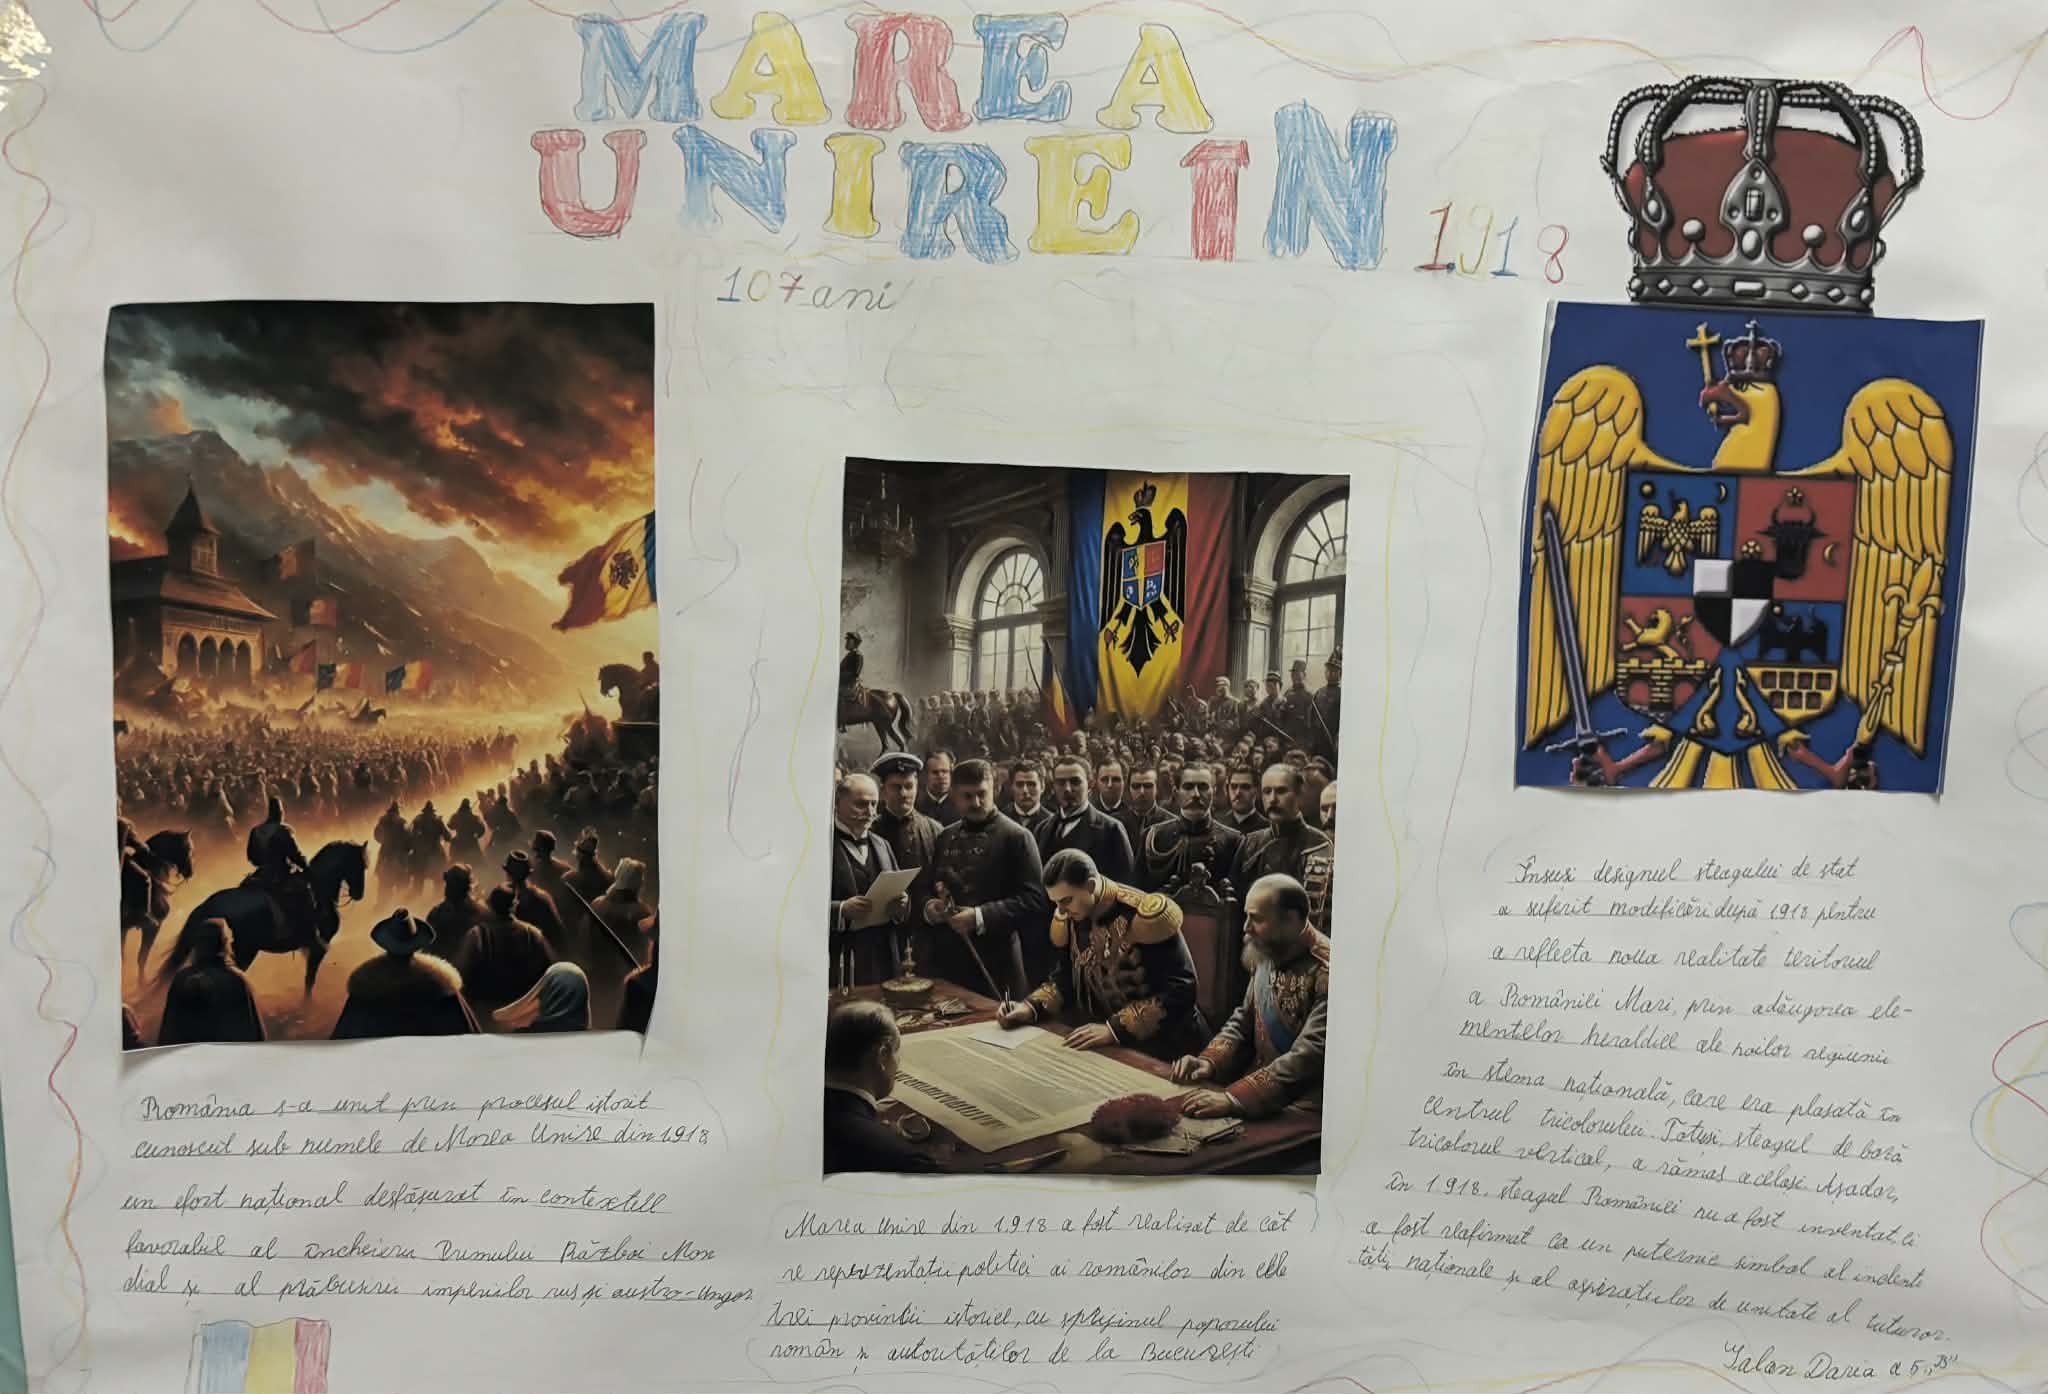 MAREA
UNIRE ÎN 1918
107 ani
România s-a unit prin procesul istoric
cunoscut sub numele de Marea Unire din 1918
un efort național desfășurat în contextul
favorabil al încheieru Primului Război Mon
dial și al prăbusirii imperiilor rus și austro-ungar
Marea Unire din 1918 a fost realizat de căt
re reprezentatii politici ai românilor din cele
trei provincii istorice, cu sprijinul poporului
român și autorităților de la București
Însuși designul steagului de stat
a suferit modificări după 1918 pentru
a reflecta noua realitate teritorial
a României Mari, prin adăugarea ele-
mentelor heraldice ale noilor regiunii
în stema națională, care era plasată în
centrul tricolorului. Totuși, steagul de bază
tricolorul vertical, a rămas același. Așadar,
în 1918, steagul României nu a fost inventat, ci
a fost reafirmat ca un puternic simbol al indenti
tății naționale și al aspirațiilor de unitate al tuturor.
Ialan Daria a 5 „B"